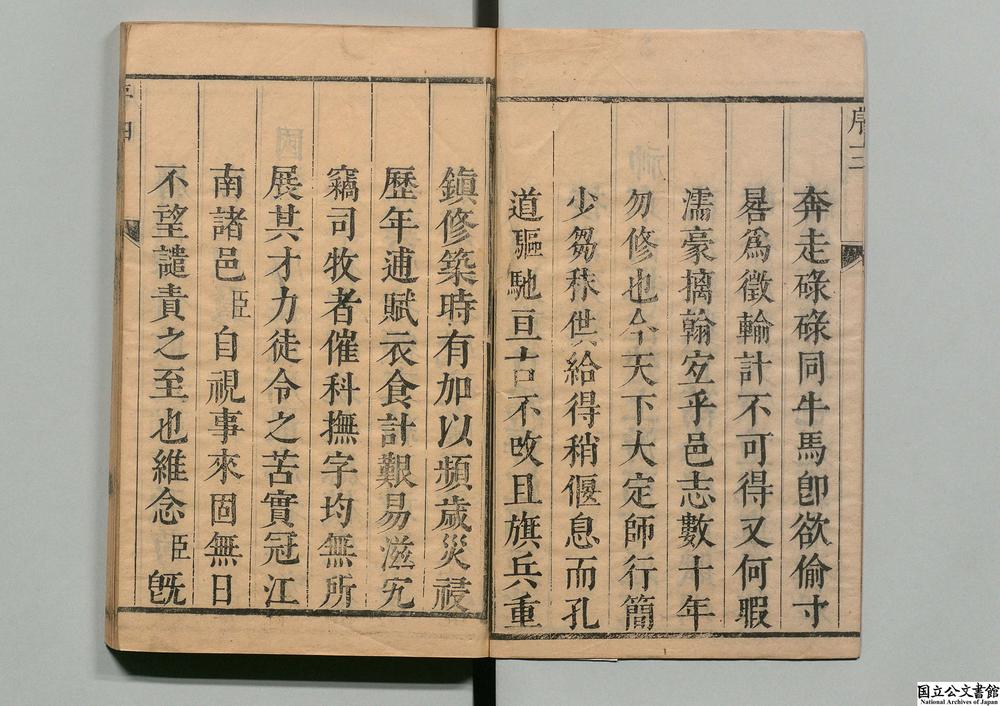 序三
奔走碌碌同牛馬卽欲偷寸
晷爲徵輸計不可得又何暇
濡豪摛翰宐乎邑志數十年
勿修也今天下大定師行簡
少芻秣供給得稍偃息而孔
道驅馳亘古不改且旗兵重
鎮修築時有加以頻歲災祲
歷年逋賦衣食計艱易滋宄
竊司牧者催科撫字均無所
展其才力徒令之苦實冠江
南諸邑臣自視事來固無日
不望譴責之至也維念臣旣
國立公文書館
National Archives of Japan